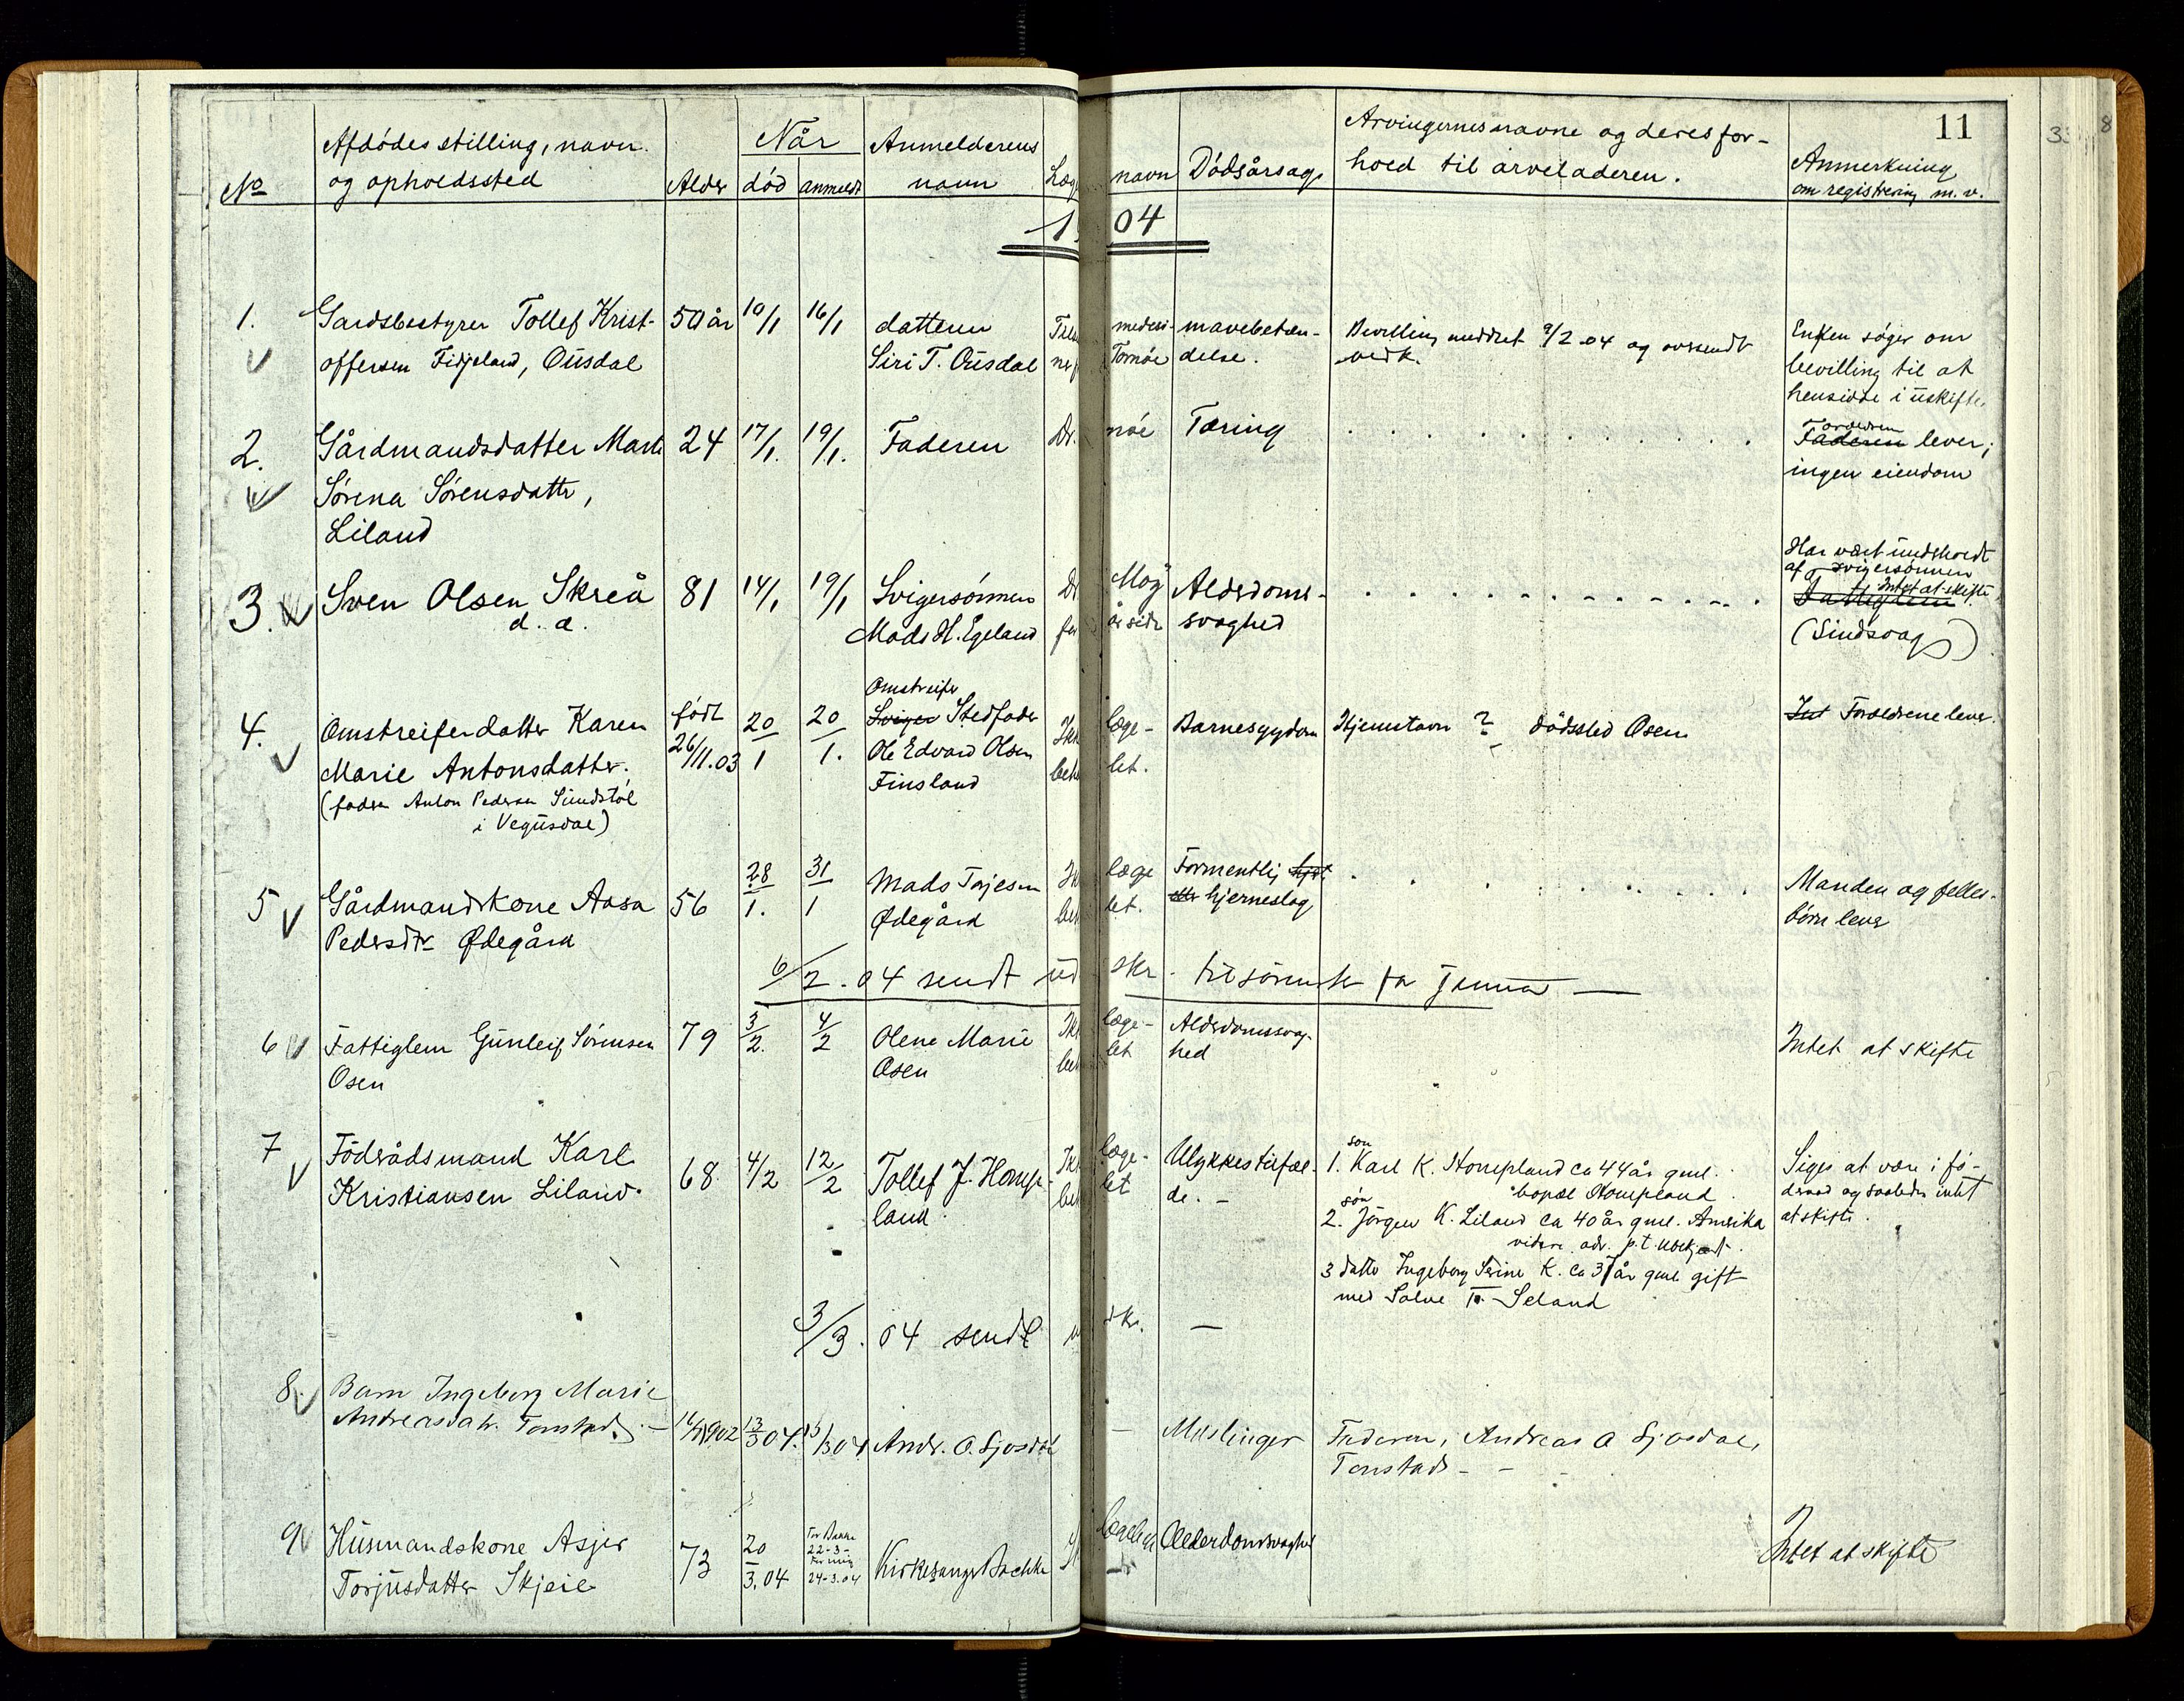 11
No
Afdödes stilling, navn
og opholdssted
Alder
Når
död
anmeldt
Anmelderens
navn
Læg
navn
Dödsårsag
Arvingernes navne og deres for-
hold til arveladeren.
Anmerkning
om registrering m.v.
1 04
1.
Gardsbestyrer Tollef Krist-
offersen Fidjeland, Ousdal
50 år
10/1
16/1
datteren
Siri T. Ousdal
medisi-
Tornöe
mavebetæn-
delse.
Bevilling meddelt 9/2 04 og oversendt
vedk.
Enken söger om
bevilling til at
hensidde i uskifte.
2.
Gårdmandsdatter Marte
Sörena Sörensdatter,
Liland
24
17/1.
19/1.
Faderen
Dr.
nöe
Tæring
Forældren
Faderen lever;
ingen eiendom
3.
Sven Olsen Skreå
d. a.
81
14/1
19/1
Svigersönnen
Mads H. Egeland
Dr
Mog
år siden
Alderdoms-
svaghed
Har vært underholdt
af svigersönnen
Intet at skifte
(Sindsvag)
4.
Omstreiferdatter Karen
Marie Antonsdatter.
(fader Anton Pedersen Sundstöl
i Vegusdal)
födt
26/11.03
20
1
20
1.
Omstreifer
Sviger Stedfader
Ole Edvard Olsen
Finsland
Ikk
beh
læge-
let.
Barnesygdom
Hjemstavn ? dödssted Osen
Int Forældrene lever.
5
Gårdmandskone Aasa
Pedersdtr Ödegård
56
28
1.
31
1
Mads Tarjesen
Ödegård
Ikk
beh
læge
let.
Formentlig hjert
eller hjerneslag
Manden og felles-
börn lever
6/2. 04 sendt ud skr.
6
Fattiglem Gunleif Sörensen
Osen
79
3
2.
4
2
Olene Marie
Osen
Ikk
beh
læge-
let
Alderdomssvag-
hed
Intet at skifte
7
Föderådsmand Karl
Kristiansen Liland.
68
4/2
12/2
Tollef J. Homp-
land.
Ikk
beh
læge-
let
Ulykkestilfæl-
de. -
son
1. Karl K. Hompland ca 44 år gml.
bopæl Hompland.
sön
2. Jörgen K. Liland ca 40 år gml. Amerika
videre adr. p.t. ubekjendt.
3 datter Ingeborg Serine K. ca 37 år gml. gift
med Salve T. Seland
Siges at være i fö-
deraad og saaledes intet
at skifte.
3/3. 04 sendt u skr. —
8.
Barn Ingeborg Marie
Andreasdatr. Tonstad. —
13/3 04.
15/3 04
Andr. O. Sjosdal
—
Meslinger
Faderen, Andreas O Sjosdal,
Tonstad - -
9
Husmandskone Asjer
Torjusdatter Skjeie
73
20
3.04
For Bakke
22-3-
For mig
24-3.04
Kirkesanger Bachke
Alderdomsvaghed
Intet at skifte